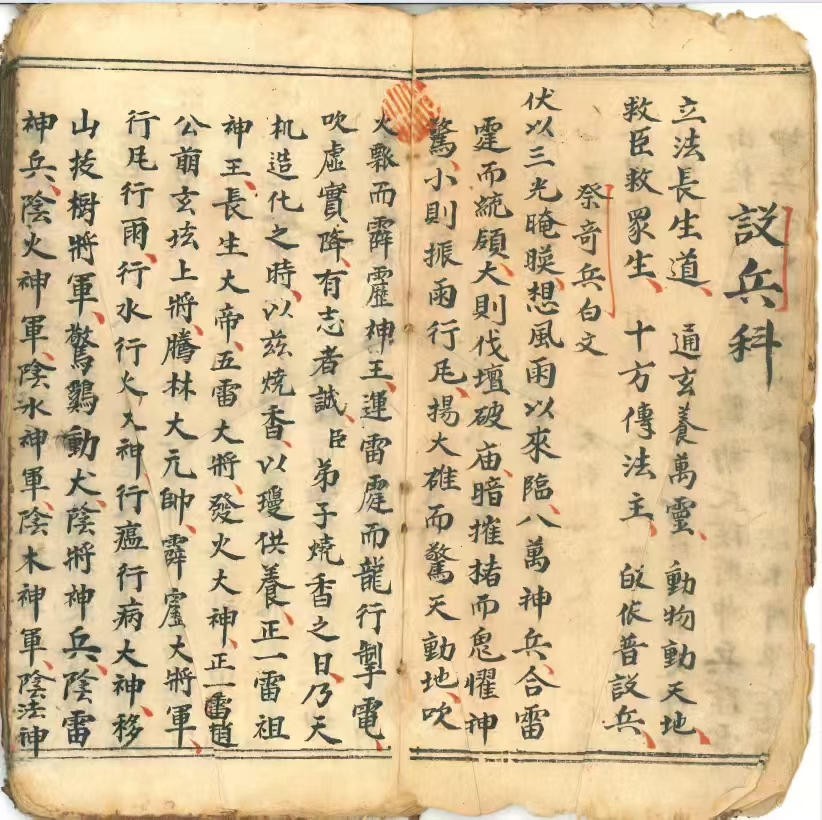 設兵科
立法長生道 通玄養萬靈 動物動天地
救臣救眾生 十方傳法主 皈依普設兵
祭奇兵白文
伏以三光晻暎想風雨以來臨八萬神兵合雷
霆而統領大則伐壇破庙暗摧㨋而鬼懼神
驚小則振雨行風揚大雄而驚天動地吹
火瓢而霹靂神王運雷霆而龍行掣電
吹虛實降有志者誠臣弟子燒香之日乃天
机造化之時以兹燒香以瓊供養正一雷祖
神王長生大帝五雷大將發火大神正一雷趙
公萠玄坛上將騰林大元帥霹靂大將軍
行風行雨行水行火大神行瘟行病大神移
山技樹將軍驚鷄動犬陰將神兵陰雷
神兵陰火神軍陰水神軍陰木神軍陰法神